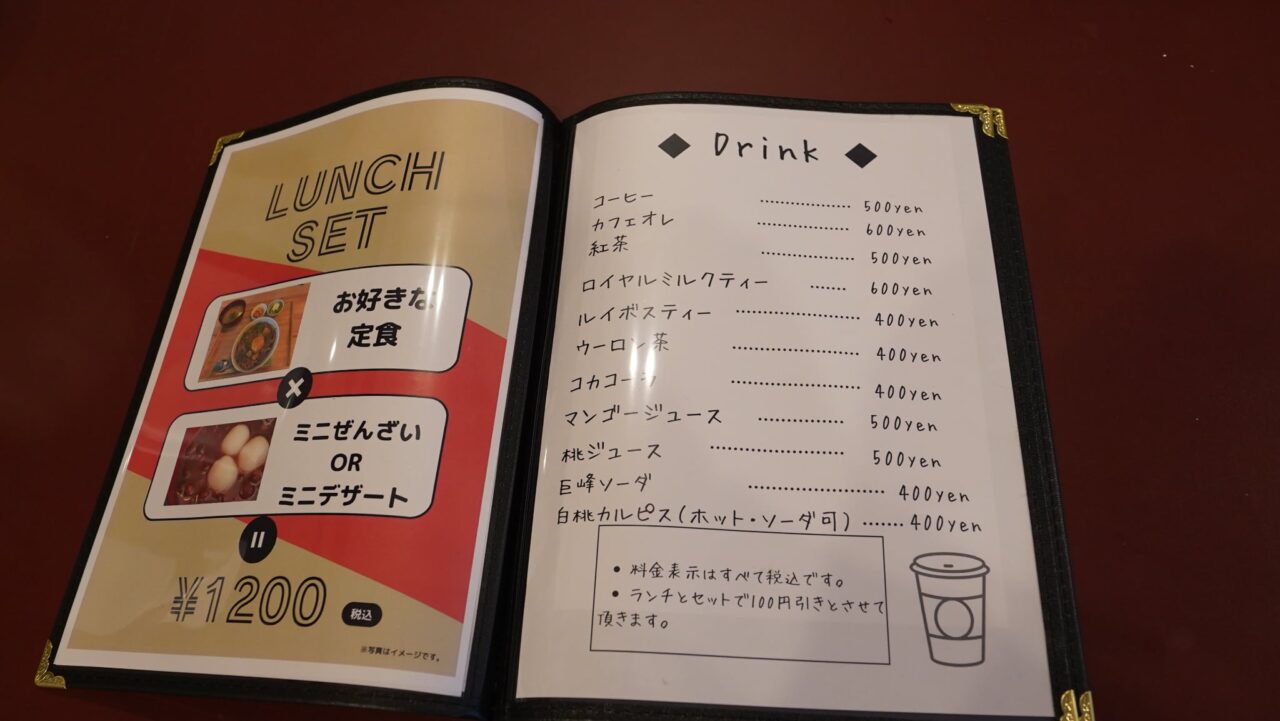 LUNCH
SET
お好きな
定食
×
ミニぜんざい
OR
ミニデザート
=
¥1200 税込
※写真はイメージです。
◆ Drink ◆
コーヒー ................ 500yen
カフェオレ ................ 600yen
紅茶 ................ 500yen
ロイヤルミルクティー ...... 600yen
ルイボスティー ..................... 400yen
ウーロン茶 ..................... 400yen
コカコーラ ..................... 400yen
マンゴージュース .............. 500yen
桃ジュース ................. 500yen
巨峰ソーダ ...................... 400yen
白桃カルピス(ホット・ソーダ可) ....... 400yen
• 料金表示はすべて税込です。
• ランチとセットで100円引きとさせて
頂きます。